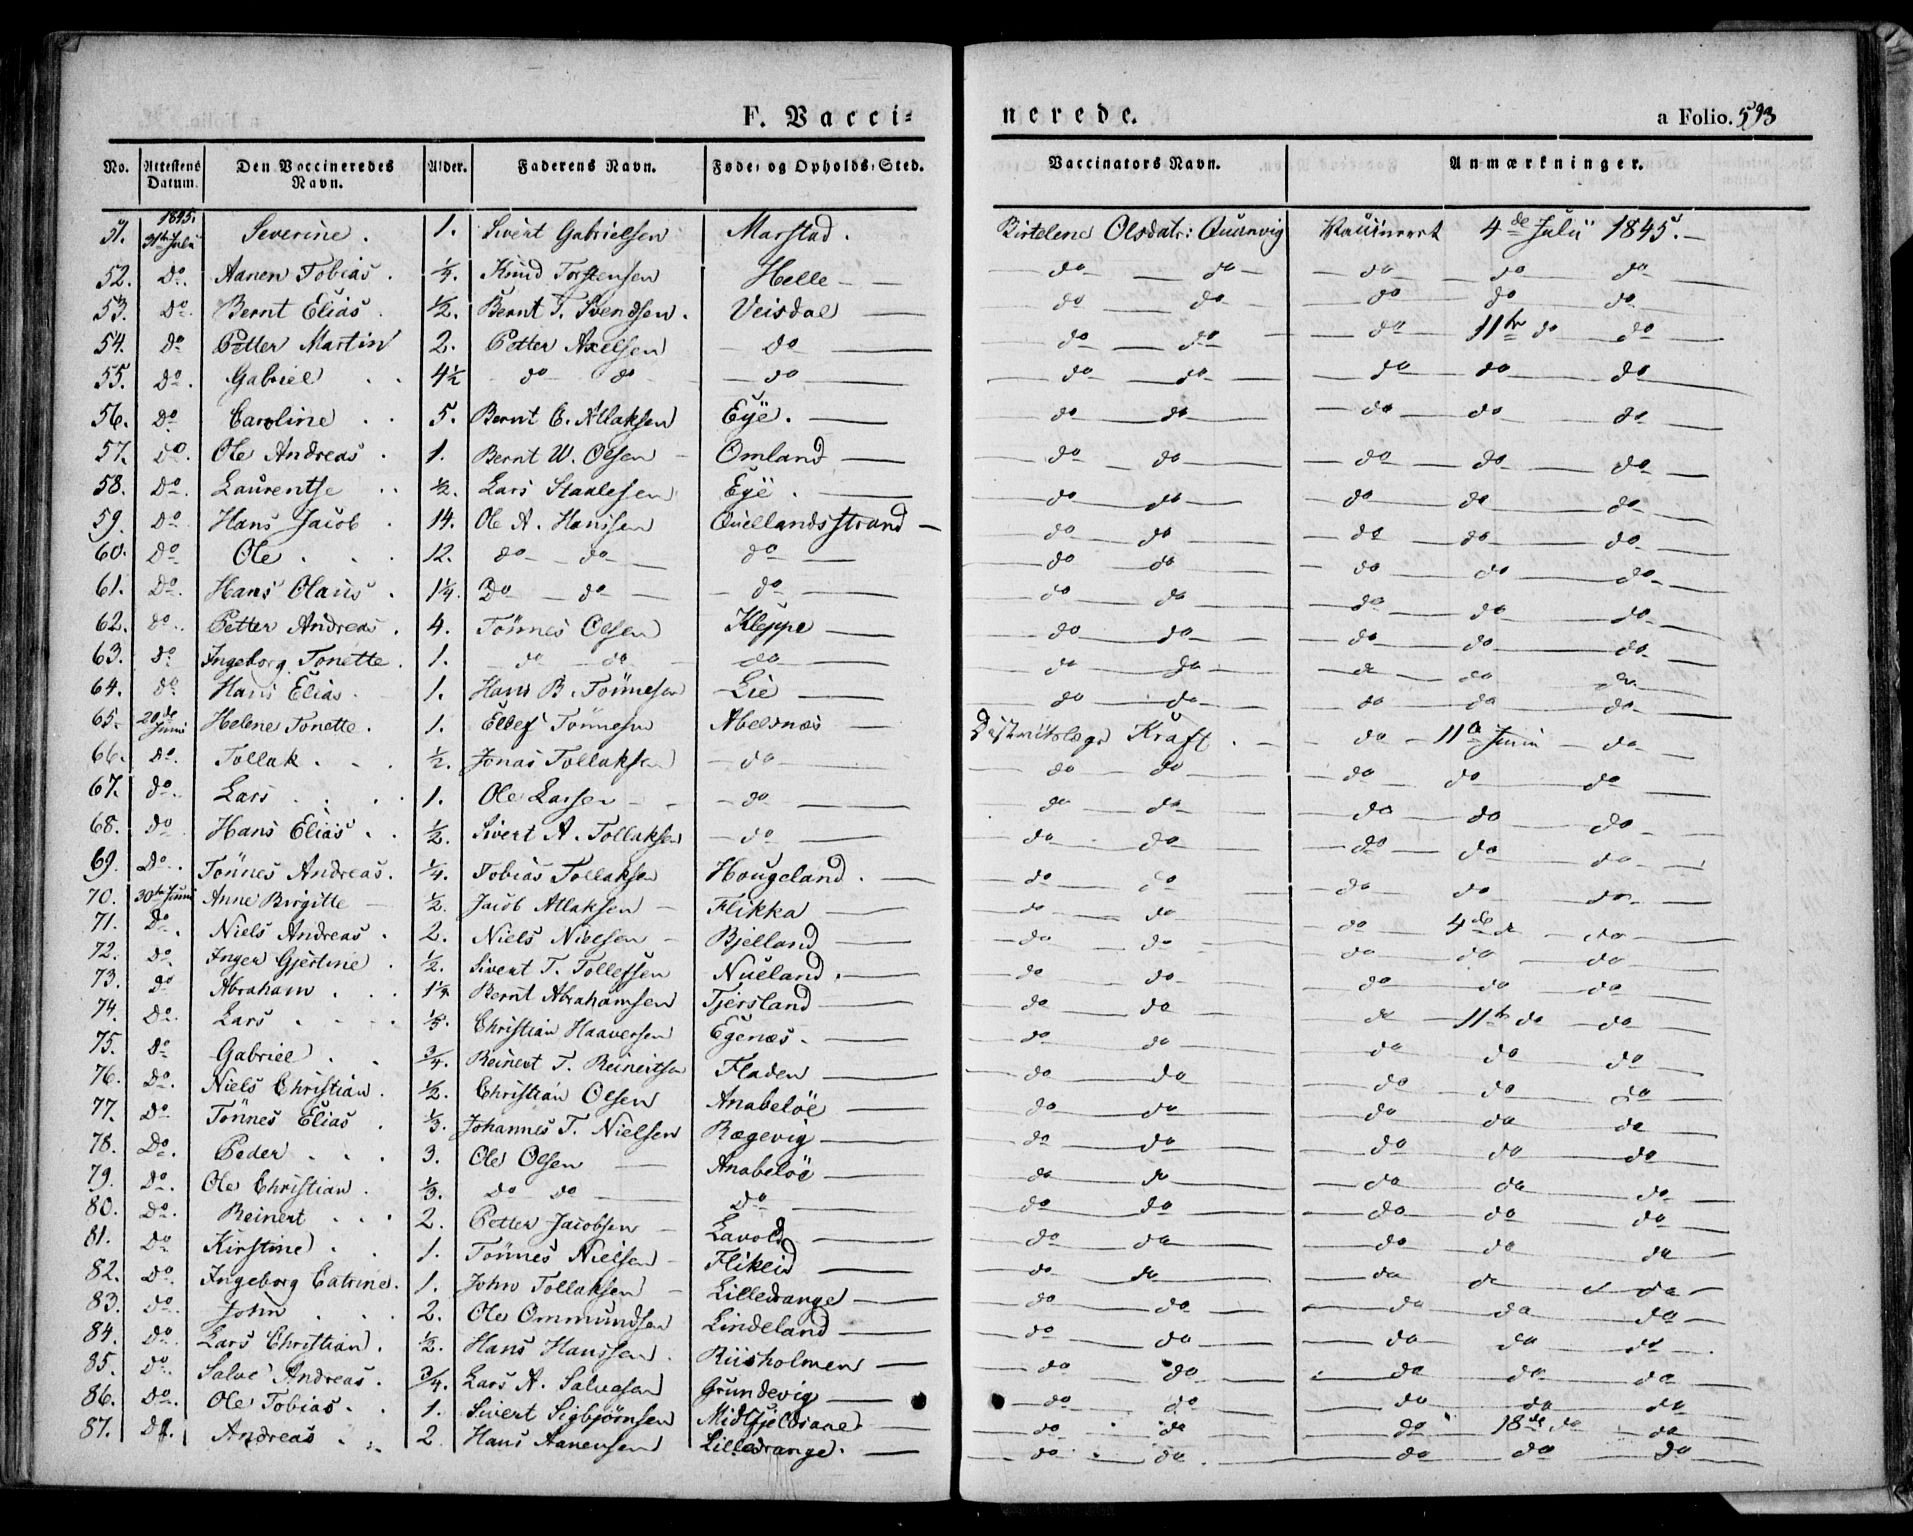 F. Vacci- nerede. a Folio. 593
No. Attestens Datum. Den Vaccineredes Navn. Alder. Faderens Navn. Føde- og Opholds-Sted. Vaccinators Navn. Anmærkninger.
51. 1845. 31te Juli Severine. 1. Sivert Gabrielsen Marstad. Olsdatr: Vaccineret 4de Julii 1845.
52. Do. Aanen Tobias. 1/4. Knud Torstensen Helle do do do do do
53. Do. Bernt Elias. 1/2. Bernt T. Svendsen. Veisdal do do do do do
54. Do Petter Martin 2. Petter Axelsen Do do do do 11te do do
55. Do. Gabriel 4 1/2 do do do do do do do do
56. Do Caroline 5. Bernt C. Atlaksen Eye. do do do do do
57. Do. Ole Andreas. 1. Bernt W. Olsen Omland do do do do do
58. Do. Laurentse 1/2. Lars Staalesen Eye. do do do do do
59. Do Hans Jacob. 14. Ole A. Hansen Quellandsstrand do do do do do
60. Do Ole. 12. do do do do do do do do
61. Do. Hans Olaus. 1 1/4. Do do do do do do do do
62. do. Petter Andreas. 4. Tönnes Olsen Kleppe do do do do do
63. do Ingeborg Tonette. 1. do do do do do do do do
64. do Hans Elias. 1. Hans B. Tönnesen Lie do do do do do
65. 20de Junii Helene Tonette. 1. Ellef Tönnesen Abelsnæs Kraft. do 11te Junii do
66. do. Tollak. 1/2. Jonas Tollaksen do do do do do do
67. do. Lars 1. Ole Larsen do do do do do do
68. do Hans Elias. 1/2. Sivert A. Tollaksen do do do do do do
69. Do. Tönnes Andreas. 1/4. Tobias Tollaksen Hougeland. do do do do do
70. 30te Junii Anne Birgitte 1/2. Jacob Atlaksen Flikka do do do do do
71. Do. Niels Andreas. 2. Niels Nielsen Bjelland do do do 4de do do
72. Do Inger Gjertine. 1/2. Sivert T. Tollefsen Nueland. do do do do do
73. do Abraham. 1 1/4 Bernt Abrahamsen Tjersland do do do do do
74. Do. Lars 1/3. Christian Haaversen Egenæs. do do do 11te do do
75. Do Gabriel. 3/4. Reinert T. Reinertsen Fladen do do do do do
76. Do. Niels Christian. 1/2. Christian Olsen Anabelöe do do do do do
77. Do Tönnes Elias. 1/3. Johannes T. Nielsen Rægevig do do do do do
78. Do. Peder 3. Ole Olsen Anabelöe do do do do do
79. Do. Ole Christian. 1/3. Do Do Do do do do do do
80. Do. Reinert 2. Petter Jacobsen Lavold do do do do do
81. Do Kirstine 1. Tönnes Nielsen Flikeid do do do do do
82. Do. Ingeborg Catrine. 1. John Tollaksen Lilledrange do do do do do
83. Do. John 2. Ole Ommundsen Lindeland do do do do do
84. Do Lars Christian. 1/2. Hans Hanssen. Riisholmen do do do do do
85. Do. Salve Andreas. 3/4. Lars A. Salvesen Grundevig do do do do do
86. Do. Ole Tobias. 1. Sivert Sigbjörnsen do do do 18de do do
87. Do. Andreas 2 Hans Aanensen Lilledrange. do do do do do